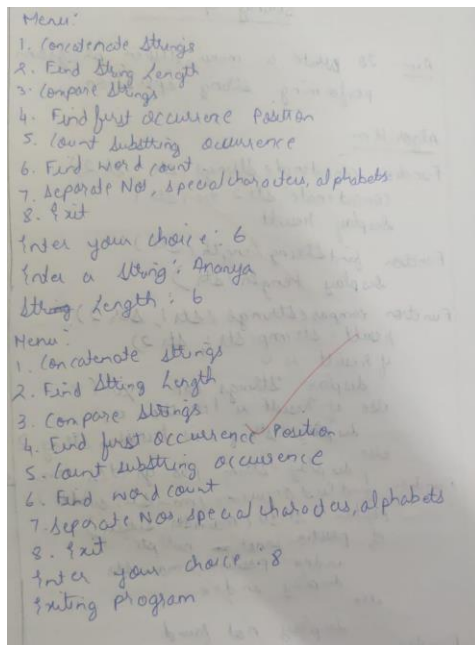 Menu:
1. Concatenate Strings
2. Find String Length
3. Compare Strings
4. Find first occurrence Position
5. Count substring occurrence
6. Find word count
7. Separate Nos, special characters, alphabets
8. Exit
Enter your choice: 6
Enter a String: Ananya
String Length: 6
Menu:
1. Concatenate strings
2. Find String Length
3. Compare Strings
4. Find first occurrence Position
5. Count substring occurrence
6. Find word count
7. Separate Nos, special characters, alphabets
8. Exit
Enter your choice 8
Exiting program